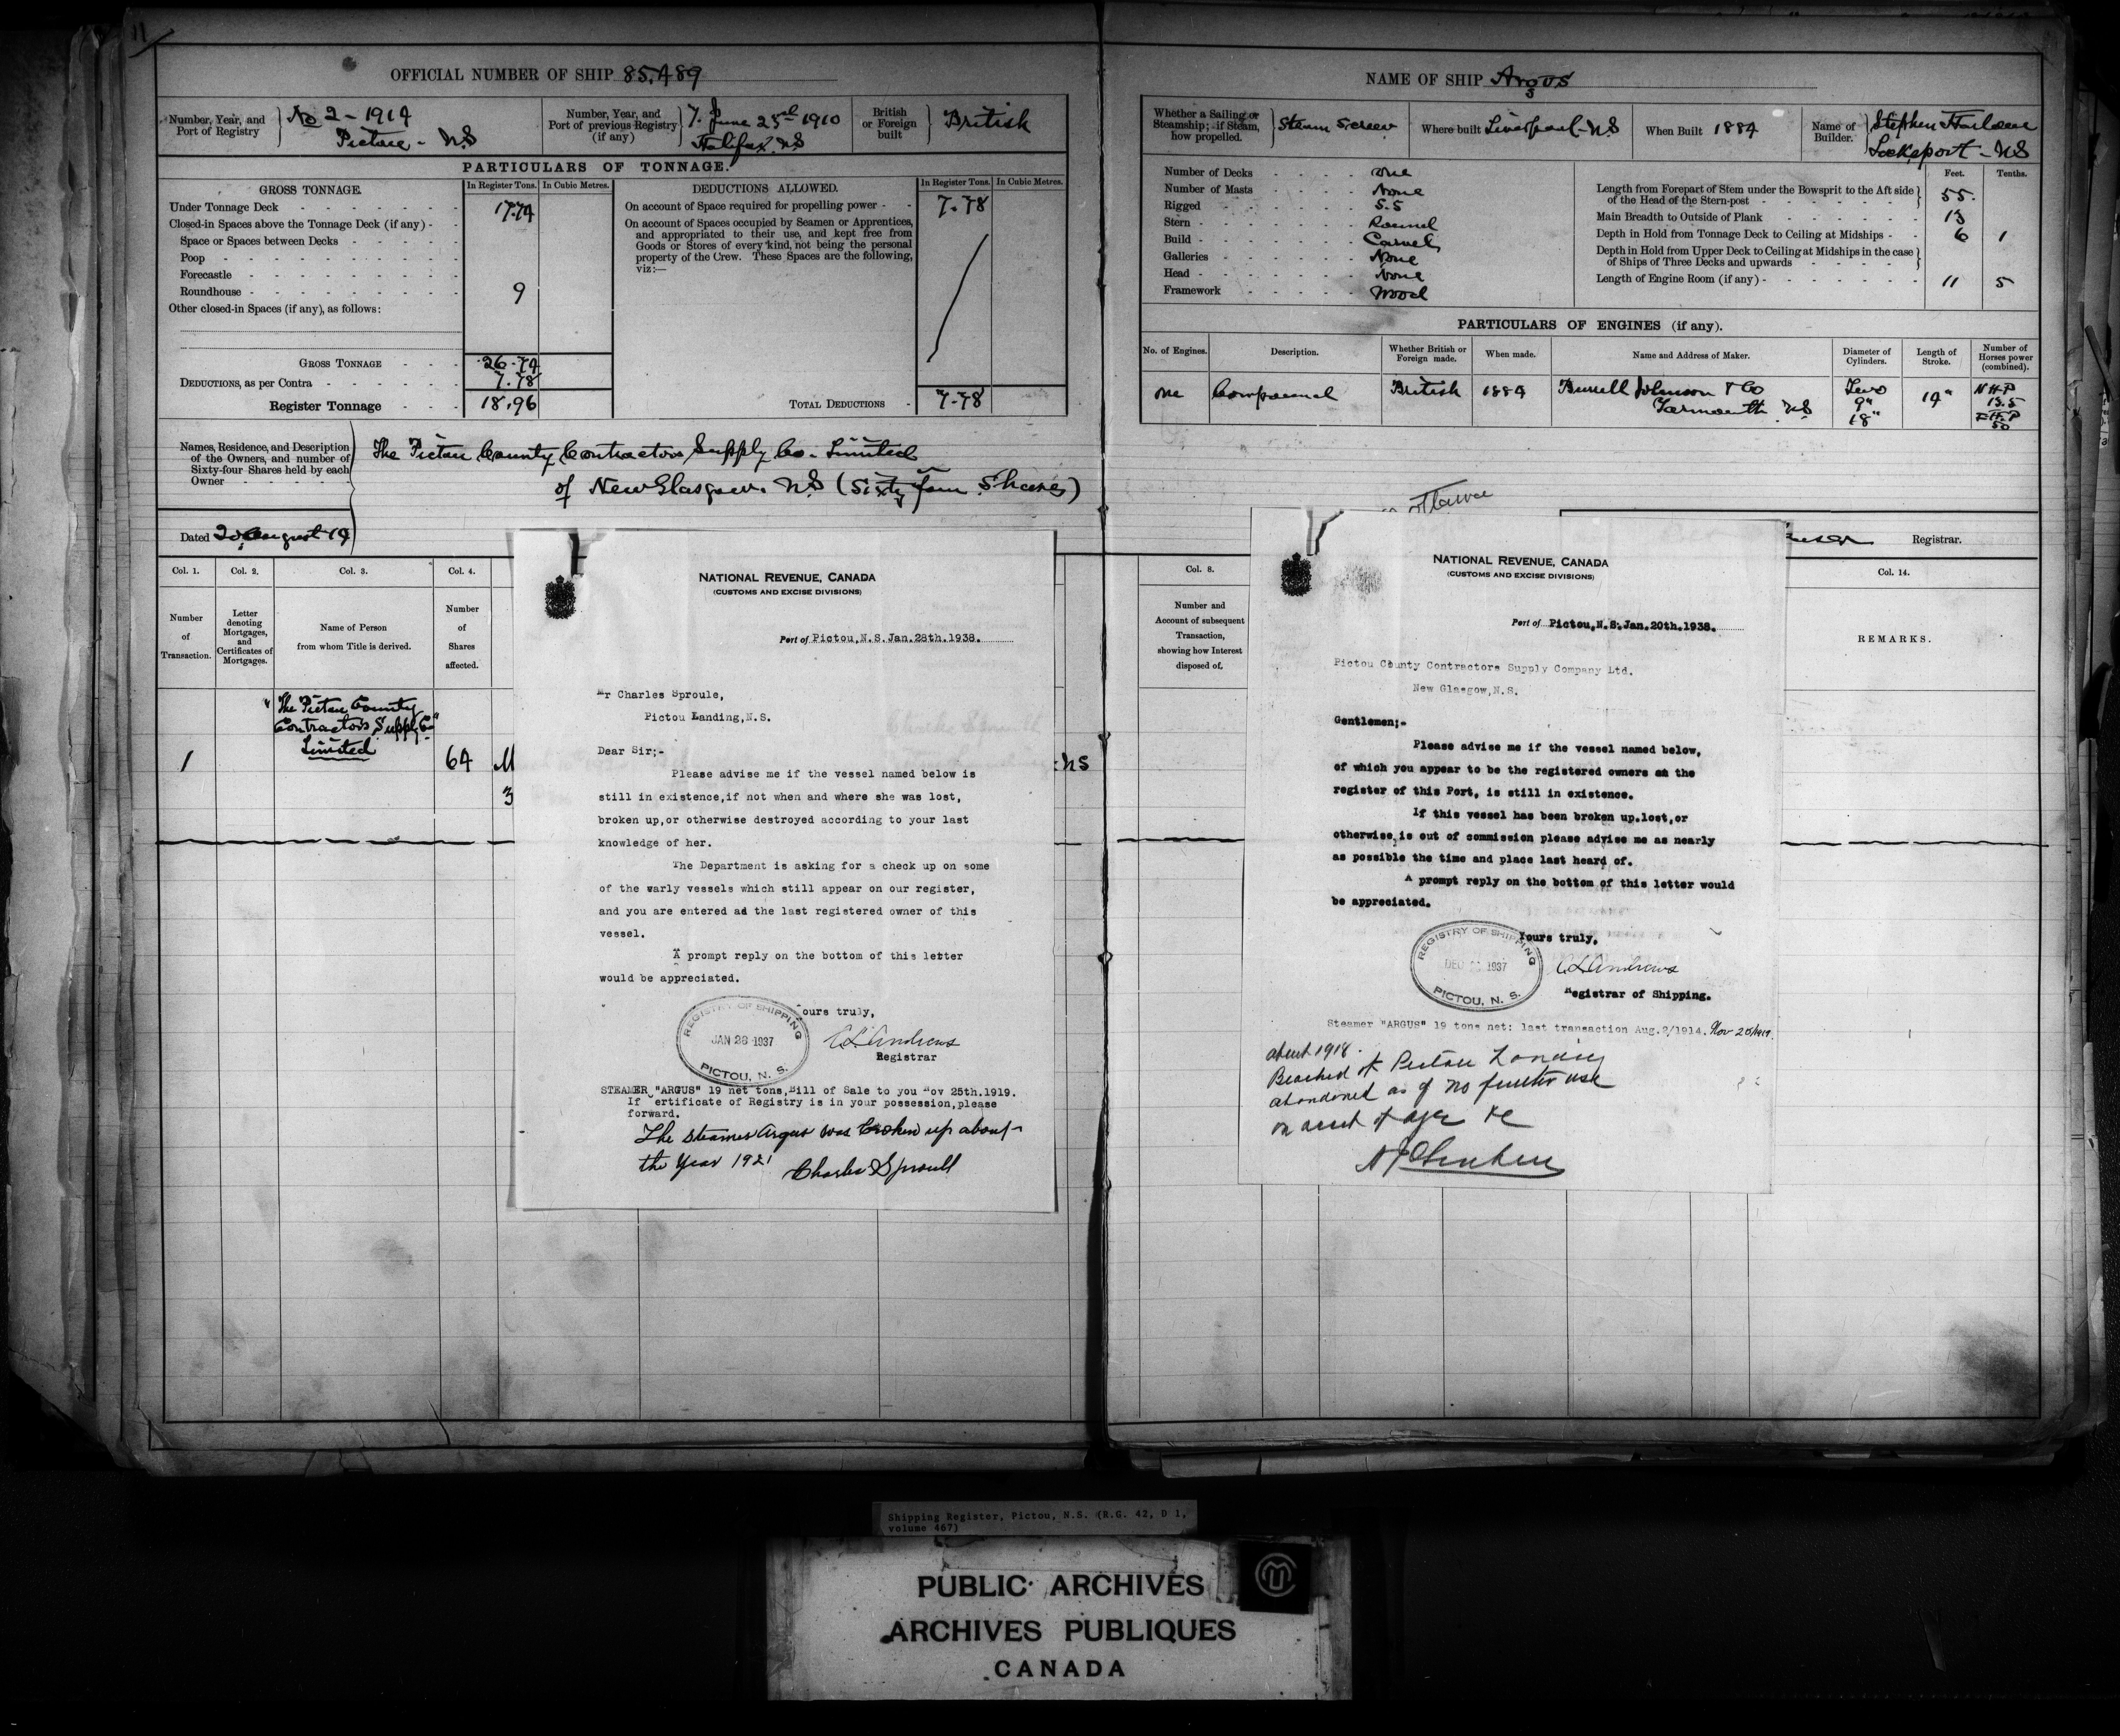 11
OFFICIAL NUMBER OF SHIP 85,489
Number, Year, and Port of Registry
No 2 - 1914
Pictou - NS
Number, Year, and Port of previous Registry (if any)
7. June 25rd 1910
Halifax NS
British or Foreign built
British
PARTICULARS OF TONNAGE.
GROSS TONNAGE.
In Register Tons.
In Cubic Metres.
Under Tonnage Deck 17.74
Closed-in Spaces above the Tonnage Deck (if any)
Space or Spaces between Decks
Poop
Forecastle
Roundhouse 9
Other closed-in Spaces (if any), as follows:
GROSS TONNAGE 26.74
DEDUCTIONS, as per Contra 7.78
Register Tonnage 18,96
DEDUCTIONS ALLOWED.
In Register Tons.
In Cubic Metres.
On account of Space required for propelling power 7.78
On account of Spaces occupied by Seamen or Apprentices,
and appropriated to their use, and kept free from
Goods or Stores of every kind, not being the personal
property of the Crew. These Spaces are the following,
viz:—
TOTAL DEDUCTIONS 7.78
Names, Residence, and Description
of the Owners, and number of
Sixty-four Shares held by each
Owner
The Pictou County Contractors Supply Co. Limited
of New Glasgow. NS (Sixty four Shares)
Dated 20 August 14
Col. 1.
Col. 2.
Col. 3.
Col. 4.
Number
of
Transaction.
Letter
denoting
Mortgages,
and
Certificates of
Mortgages.
Name of Person
from whom Title is derived.
Number
of
Shares
affected.
1
"The Pictou County
Contractors Supply Co"
Limited
64
M
3
NS
NATIONAL REVENUE, CANADA
(CUSTOMS AND EXCISE DIVISIONS)
Port of Pictou,N.S.Jan.28th.1938.
Mr Charles Sproule,
Pictou Landing,N.S.
Dear Sir;-
Please advise me if the vessel named below is
still in existence,if not when and where she was lost,
broken up,or otherwise destroyed according to your last
knowledge of her.
The Department is asking for a check up on some
of the warly vessels which still appear on our register,
and you are entered ad the last registered owner of this
vessel.
A prompt reply on the bottom of this letter
would be appreciated.
Yours truly,
REGISTRY OF SHIPPING
JAN 28 1937
PICTOU, N. S.
C L Andrews
Registrar
STEAMER "ARGUS" 19 net tons,Bill of Sale to you Nov 25th.1919.
If ertificate of Registry is in your possession,please
forward.
The steamer Argus was broken up about
the Year 1921 Charles Sproull
NAME OF SHIP Argus
Whether a Sailing or Steamship; if Steam, how propelled.
Steam Screw
Where built Liverpool - NS
When Built 1884
Name of Builder.
Stephen
Lockeport - NS
Number of Decks one
Number of Masts None
Rigged S.S
Stern Round
Build Carvel
Galleries None
Head None
Framework Wood
Feet.
Tenths.
Length from Forepart of Stem under the Bowsprit to the Aft side
of the Head of the Stern-post 55.
Main Breadth to Outside of Plank 13
Depth in Hold from Tonnage Deck to Ceiling at Midships 6 1
Depth in Hold from Upper Deck to Ceiling at Midships in the case
of Ships of Three Decks and upwards
Length of Engine Room (if any) 11 5
PARTICULARS OF ENGINES (if any).
No. of Engines.
Description.
Whether British or Foreign made.
When made.
Name and Address of Maker.
Diameter of Cylinders.
Length of Stroke.
Number of Horses power (combined).
one
Compound
British
1884
Burrell Johnson & Co
Yarmouth NS
Two
9"
18"
14"
N H P
13.5
50
Ottawa
Registrar.
Col. 8.
Number and
Account of subsequent
Transaction,
showing how Interest
disposed of.
Col. 14.
REMARKS.
NATIONAL REVENUE, CANADA
(CUSTOMS AND EXCISE DIVISIONS)
Port of Pictou,N.S.Jan.20th.1938.
Pictou County Contractors Supply Company Ltd.
New Glasgow,N.S.
Gentlemen;-
Please advise me if the vessel named below,
of which you appear to be the registered owners on the
register of this Port, is still in existence.
If this vessel has been broken up.lost,or
otherwise,is out of commission please advise me as nearly
as possible the time and place last heard of.
A prompt reply on the bottom of this letter would
be appreciated.
Yours truly,
REGISTRY OF SHIPPING
DEC 1937
PICTOU, N. S.
C L Andrews
Registrar of Shipping.
Steamer "ARGUS" 19 tons net: last transaction Aug.2/1914. Nov 25/1919.
about 1918.
Beached at Pictou Landing
abandoned as of no further use
on acct of age &c
Shipping Register, Pictou, N.S. (R.G. 42, D 1,
volume 467)
PUBLIC ARCHIVES
ARCHIVES PUBLIQUES
CANADA